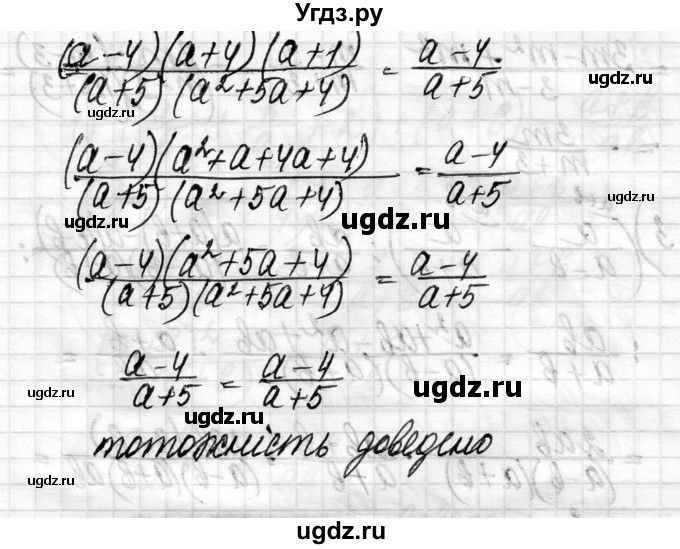 Угдз.ру
(a-4)(a+4)(a+1) / (a+5)(a²+5a+4) = a-4 / a+5.
ugdz.ru
ugdz.ru
(a-4)(a²+a+4a+4) / (a+5)(a²+5a+4) = a-4 / a+5
ugdz.ru
ugdz.ru
(a-4)(a²+5a+4) / (a+5)(a²+5a+4) = a-4 / a+5
ugdz.ru
a-4 / a+5 = a-4 / a+5
ugdz.ru
ugdz.ru
ugdz.ru
тотожність доведено
ugdz.ru
ugdz.ru
ugdz.ru